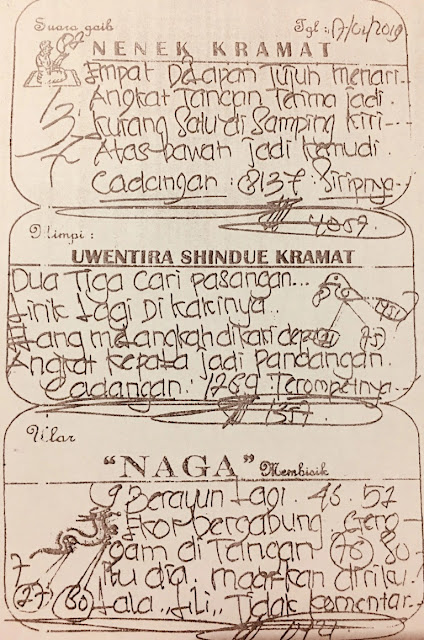 Suara gaib Tgl : 17/01/2019
NENEK KRAMAT
Empat Delapan Tujuh menari..
Angkat Tangan Terima jadi.
Kurang Satu di Samping Kiri..
Atas-bawah jadi Kemudi.
Cadangan : 8137. Siripnya..
4059.
Mimpi :
UWENTIRA SHINDUE KRAMAT
Dua Tiga Cari Pasangan...
Lirik Lagi Di Kakinya..
melangkah dikari
75
Angkat Kepala jadi Pandangan.
Cadangan. 1269 Terompetnya..
1357.
Ular
"NAGA" Membisik
9 Berayun Lagi. 46. 57
Ekor bergabung Geng-
gam di Tangan 76 80
7 Itu dia. maafkan diriku.
27 80 Lala.. Lili.. Tidak komentar.